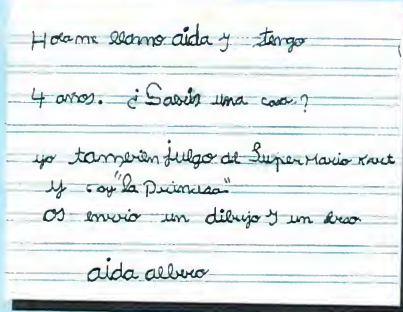 Hola me llamo aida y tengo
4 años. ¿Sabeis una cosa?
yo tamerien juego al Super Mario Kart
y soy "la Princesa"
os envio un dibujo y un beso
aida